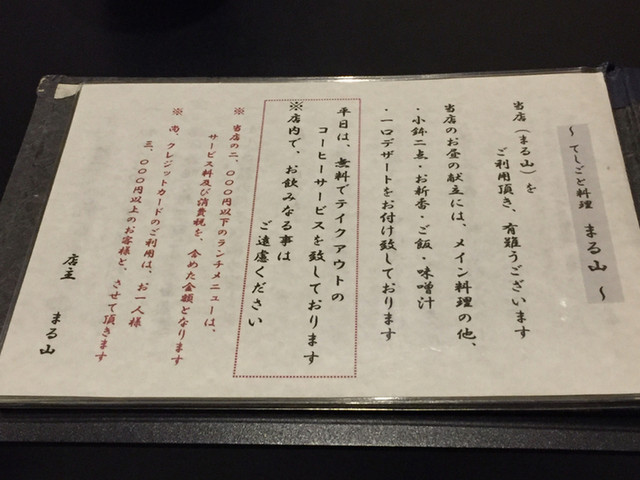 ～ てしごと料理 まる山 ～
当店（まる山）を
ご利用頂き、有難うございます
当店のお昼の献立には、メイン料理の他、
・小鉢二点・お新香・ご飯・味噌汁
・一口デザートをお付け致しております
平日は、無料でテイクアウトの
コーヒーサービスを致しております
※店内で、お飲みなる事は
ご遠慮ください
※ 当店の二、〇〇〇円以下のランチメニューは、
サービス料及び消費税を、含めた金額となります
※ 尚、クレジットカードのご利用は、お一人様
三、〇〇〇円以上のお客様と、させて頂きます
店主 まる山